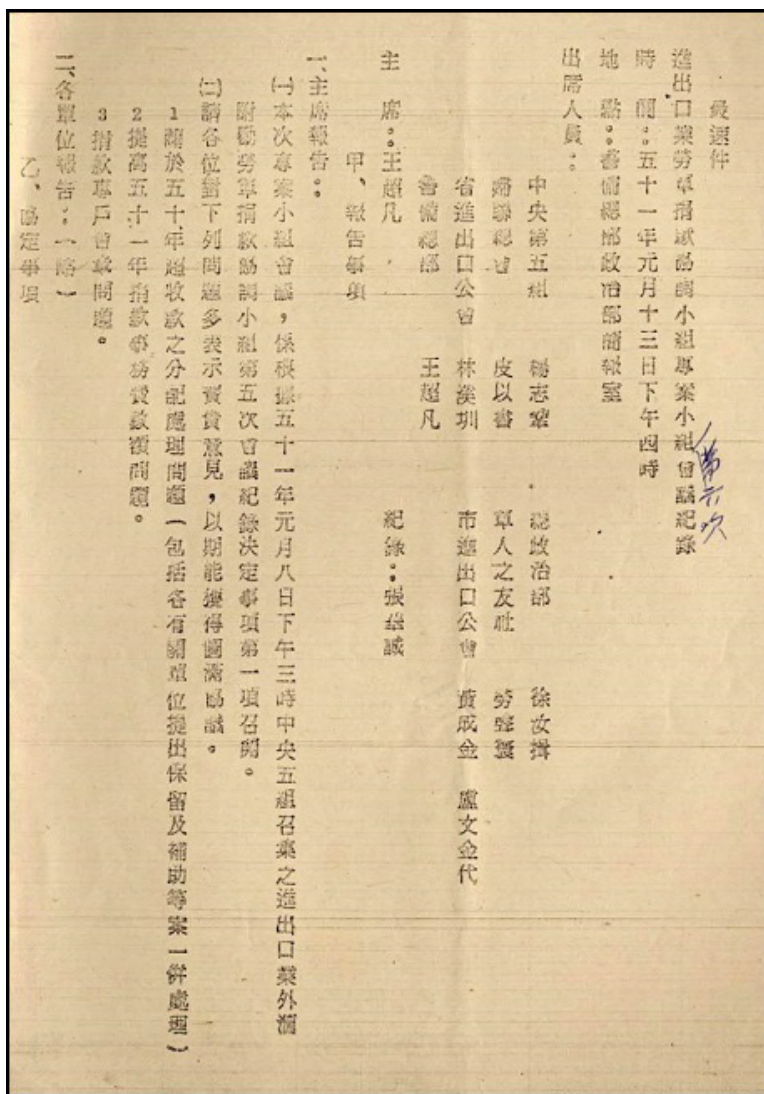 最速件
進出口業勞軍捐款協調小組專案小組會議紀錄
第六次
時　間：五十一年元月十三日下午四時
地　點：警備總部政治部簡報室
出席人員：
中央第五組　總政治部　徐汝揖
婦聯總會　皮以書　軍人之友社
省進出口公會　林漢圳　市進出口公會　黃成金　盧文金代
警備總部　王超凡
主　席：王超凡　紀錄：張
甲、報告事項
一、主席報告：
㈠本次專案小組會議，係根據五十一年元月八日下午三時中央五組召集之進出口業外滙
附勸勞軍捐款協調小組第五次會議紀錄決定事項第一項召開。
㈡請各位對下列問題多表示寶貴意見，以期能獲得圓滿協議。
1 關於五十年超收款之分配處理問題（包括各有關單位提出保留及補助等案一併處理）
2 提高五十一年捐款事務費數額問題。
3 捐款專戶會章問題。
二、各單位報告：（略）
乙、協定事項